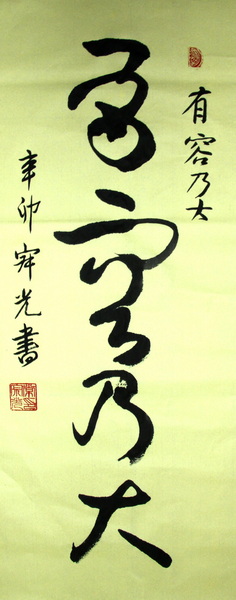 有容乃大
有容乃大
辛卯宰光書